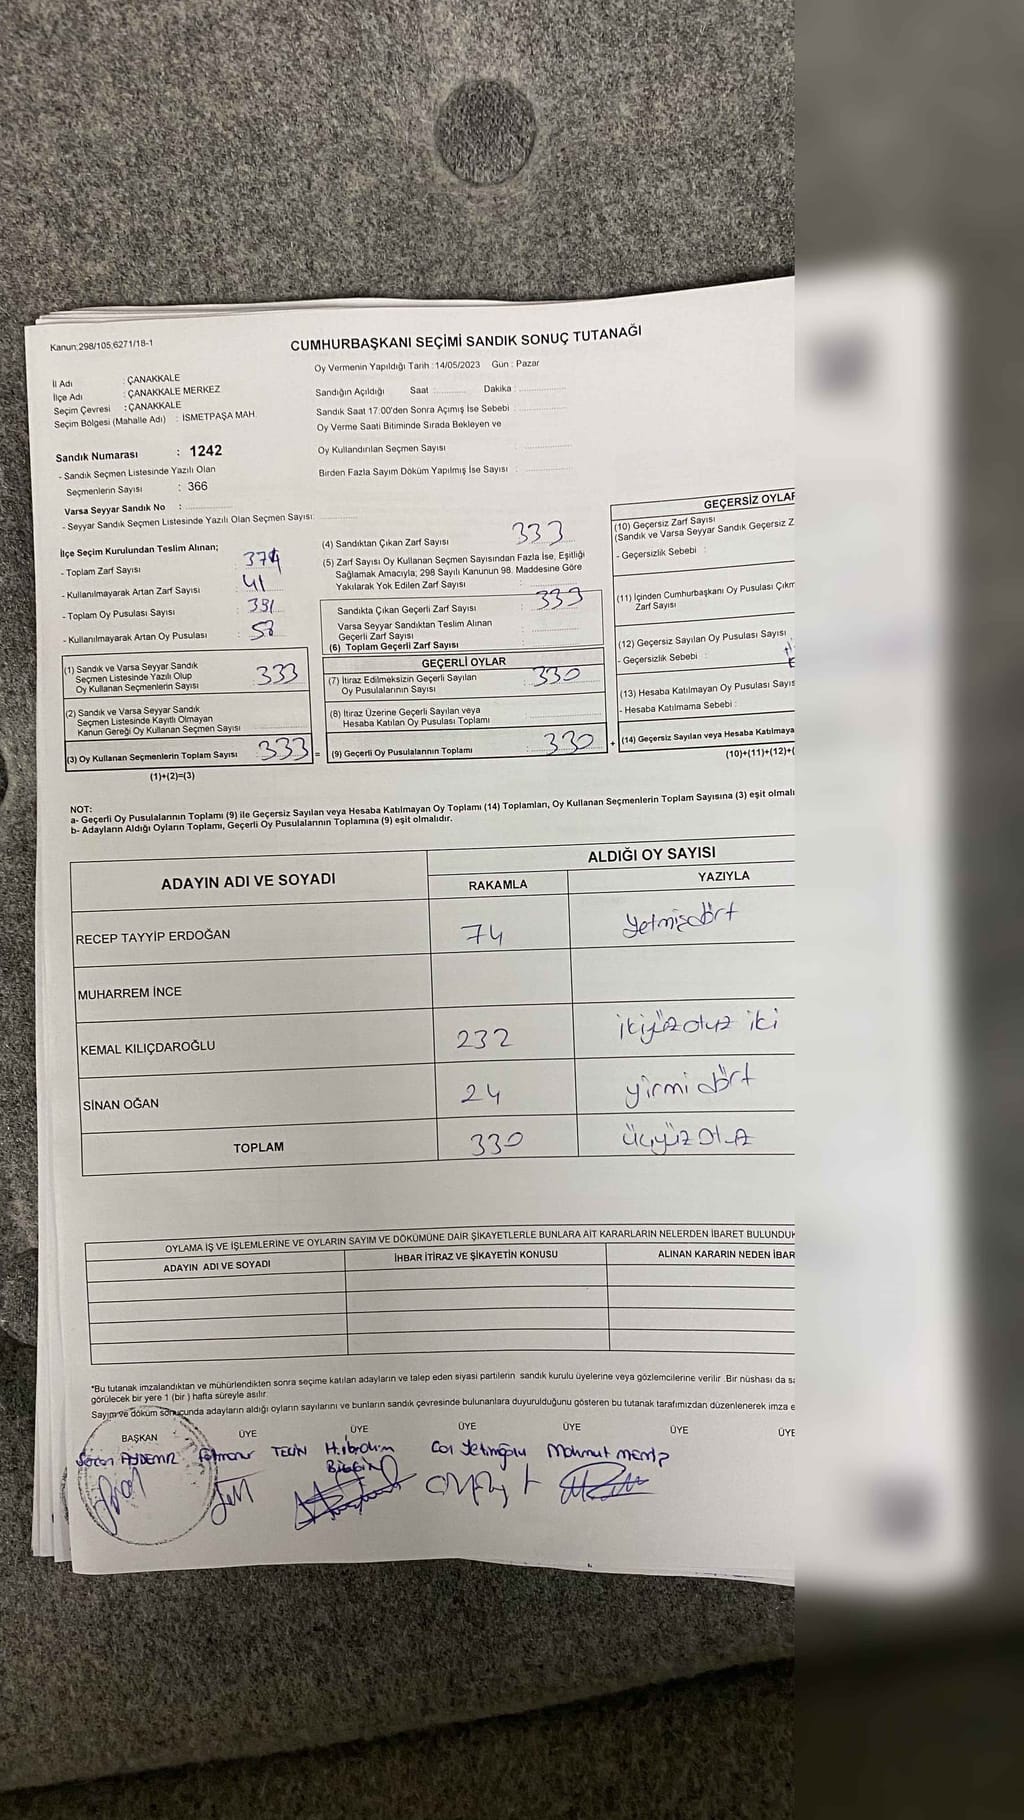 Kanun:298/105;6271/18-1
CUMHURBAŞKANI SEÇİMİ SANDIK SONUÇ TUTANAĞI
Oy Vermenin Yapıldığı Tarih :14/05/2023 Gün : Pazar
İl Adı : ÇANAKKALE
İlçe Adı : ÇANAKKALE MERKEZ
Seçim Çevresi : ÇANAKKALE
Seçim Bölgesi (Mahalle Adı) : İSMETPAŞA MAH.
Sandığın Açıldığı Saat : Dakika :
Sandık Saat 17.00'den Sonra Açımış İse Sebebi :
Oy Verme Saati Bitiminde Sırada Bekleyen ve
Oy Kullandırılan Seçmen Sayısı :
Birden Fazla Sayım Döküm Yapılmış İse Sayısı :
Sandık Numarası : 1242
- Sandık Seçmen Listesinde Yazılı Olan
Seçmenlerin Sayısı : 366
Varsa Seyyar Sandık No :
- Seyyar Sandık Seçmen Listesinde Yazılı Olan Seçmen Sayısı:
İlçe Seçim Kurulundan Teslim Alınan;
- Toplam Zarf Sayısı : 374
- Kullanılmayarak Artan Zarf Sayısı : 41
- Toplam Oy Pusulası Sayısı : 391
- Kullanılmayarak Artan Oy Pusulası : 58
(1) Sandık ve Varsa Seyyar Sandık
Seçmen Listesinde Yazılı Olup
Oy Kullanan Seçmenlerin Sayısı : 333
(2) Sandık ve Varsa Seyyar Sandık
Seçmen Listesinde Kayıtlı Olmayan
Kanun Gereği Oy Kullanan Seçmen Sayısı :
(3) Oy Kullanan Seçmenlerin Toplam Sayısı : 333 =
(1)+(2)=(3)
(4) Sandıktan Çıkan Zarf Sayısı : 333
(5) Zarf Sayısı Oy Kullanan Seçmen Sayısından Fazla İse, Eşitliği
Sağlamak Amacıyla; 298 Sayılı Kanunun 98. Maddesine Göre
Yakılarak Yok Edilen Zarf Sayısı :
Sandıkta Çıkan Geçerli Zarf Sayısı : 333
Varsa Seyyar Sandıktan Teslim Alınan
Geçerli Zarf Sayısı :
(6) Toplam Geçerli Zarf Sayısı :
GEÇERLİ OYLAR
(7) İtiraz Edilmeksizin Geçerli Sayılan
Oy Pusulalarının Sayısı : 330
(8) İtiraz Üzerine Geçerli Sayılan veya
Hesaba Katılan Oy Pusulası Toplamı :
(9) Geçerli Oy Pusulalarının Toplamı : 330 +
GEÇERSİZ OYLAR
(10) Geçersiz Zarf Sayısı
(Sandık ve Varsa Seyyar Sandık Geçersiz Z
- Geçersizlik Sebebi :
(11) İçinden Cumhurbaşkanı Oy Pusulası Çıkm
Zarf Sayısı
(12) Geçersiz Sayılan Oy Pusulası Sayısı
- Geçersizlik Sebebi :
(13) Hesaba Katılmayan Oy Pusulası Sayıs
- Hesaba Katılmama Sebebi :
(14) Geçersiz Sayılan veya Hesaba Katılmaya
(10)+(11)+(12)+(
NOT:
a- Geçerli Oy Pusulalarının Toplamı (9) ile Geçersiz Sayılan veya Hesaba Katılmayan Oy Toplamı (14) Toplamları, Oy Kullanan Seçmenlerin Toplam Sayısına (3) eşit olmalı
b- Adayların Aldığı Oyların Toplamı, Geçerli Oy Pusulalarının Toplamına (9) eşit olmalıdır.
ADAYIN ADI VE SOYADI ALDIĞI OY SAYISI
RAKAMLA YAZIYLA
RECEP TAYYİP ERDOĞAN 74 yetmişdört
MUHARREM İNCE
KEMAL KILIÇDAROĞLU 232 ikiyüzotuz iki
SİNAN OĞAN 24 yirmi dört
TOPLAM 330 üçyüz otuz
OYLAMA İŞ VE İŞLEMLERİNE VE OYLARIN SAYIM VE DÖKÜMÜNE DAİR ŞİKAYETLERLE BUNLARA AİT KARARLARIN NELERDEN İBARET BULUNDUK
ADAYIN ADI VE SOYADI İHBAR İTİRAZ VE ŞİKAYETİN KONUSU ALINAN KARARIN NEDEN İBAR
*Bu tutanak imzalandıktan ve mühürlendikten sonra seçime katılan adayların ve talep eden siyasi partilerin sandık kurulu üyelerine veya gözlemcilerine verilir .Bir nüshası da sa
görülecek bir yere 1 (bir ) hafta süreyle asılır.
Sayım ve döküm sonucunda adayların aldığı oyların sayılarını ve bunların sandık çevresinde bulunanlara duyurulduğunu gösteren bu tutanak tarafımızdan düzenlenerek imza e
BAŞKAN ÜYE ÜYE ÜYE ÜYE ÜYE ÜYE
AYDEMİR TEKİN H.ibrahim Mahmut